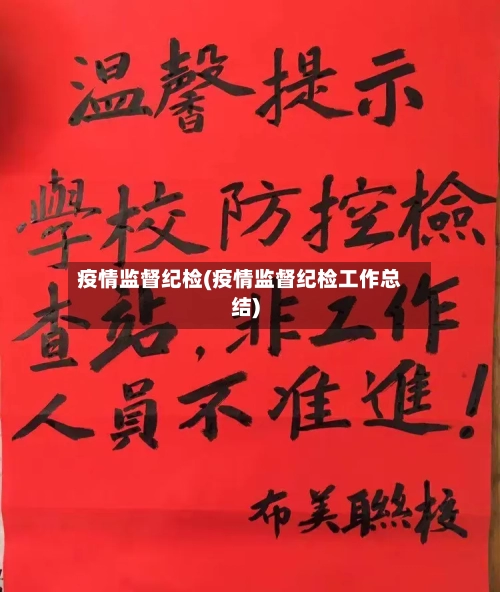 温馨提示
學校防控檢
疫情监督纪检(疫情监督纪检工作总
结)
查站,非工作
人員不准進!
布美聯校